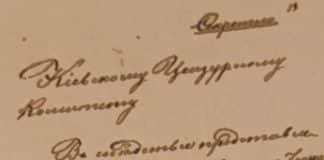 Секретно
Кіевскому Цензурному
Комитету
Въ слѣдствіе представле-